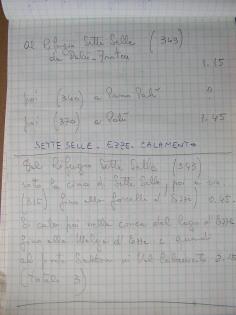 Al Rifugio Sette Selle (343)
da Palù - Frotten 1.15
poi (340) a Passo Palù
poi (370) a Palù 1.45
SETTE SELLE - EZZE - CALAMENTO
Dal Rifugio Sette Selle (343)
sotto la cima di Sette Selle, poi a
(315) fino alla forcella d'Ezze 0.45.
Si cala poi nella conca del lago d'Ezze
fino alla Malga d'Ezze e quindi
al ponte in Val Calamento 2.15
(Totale 3)